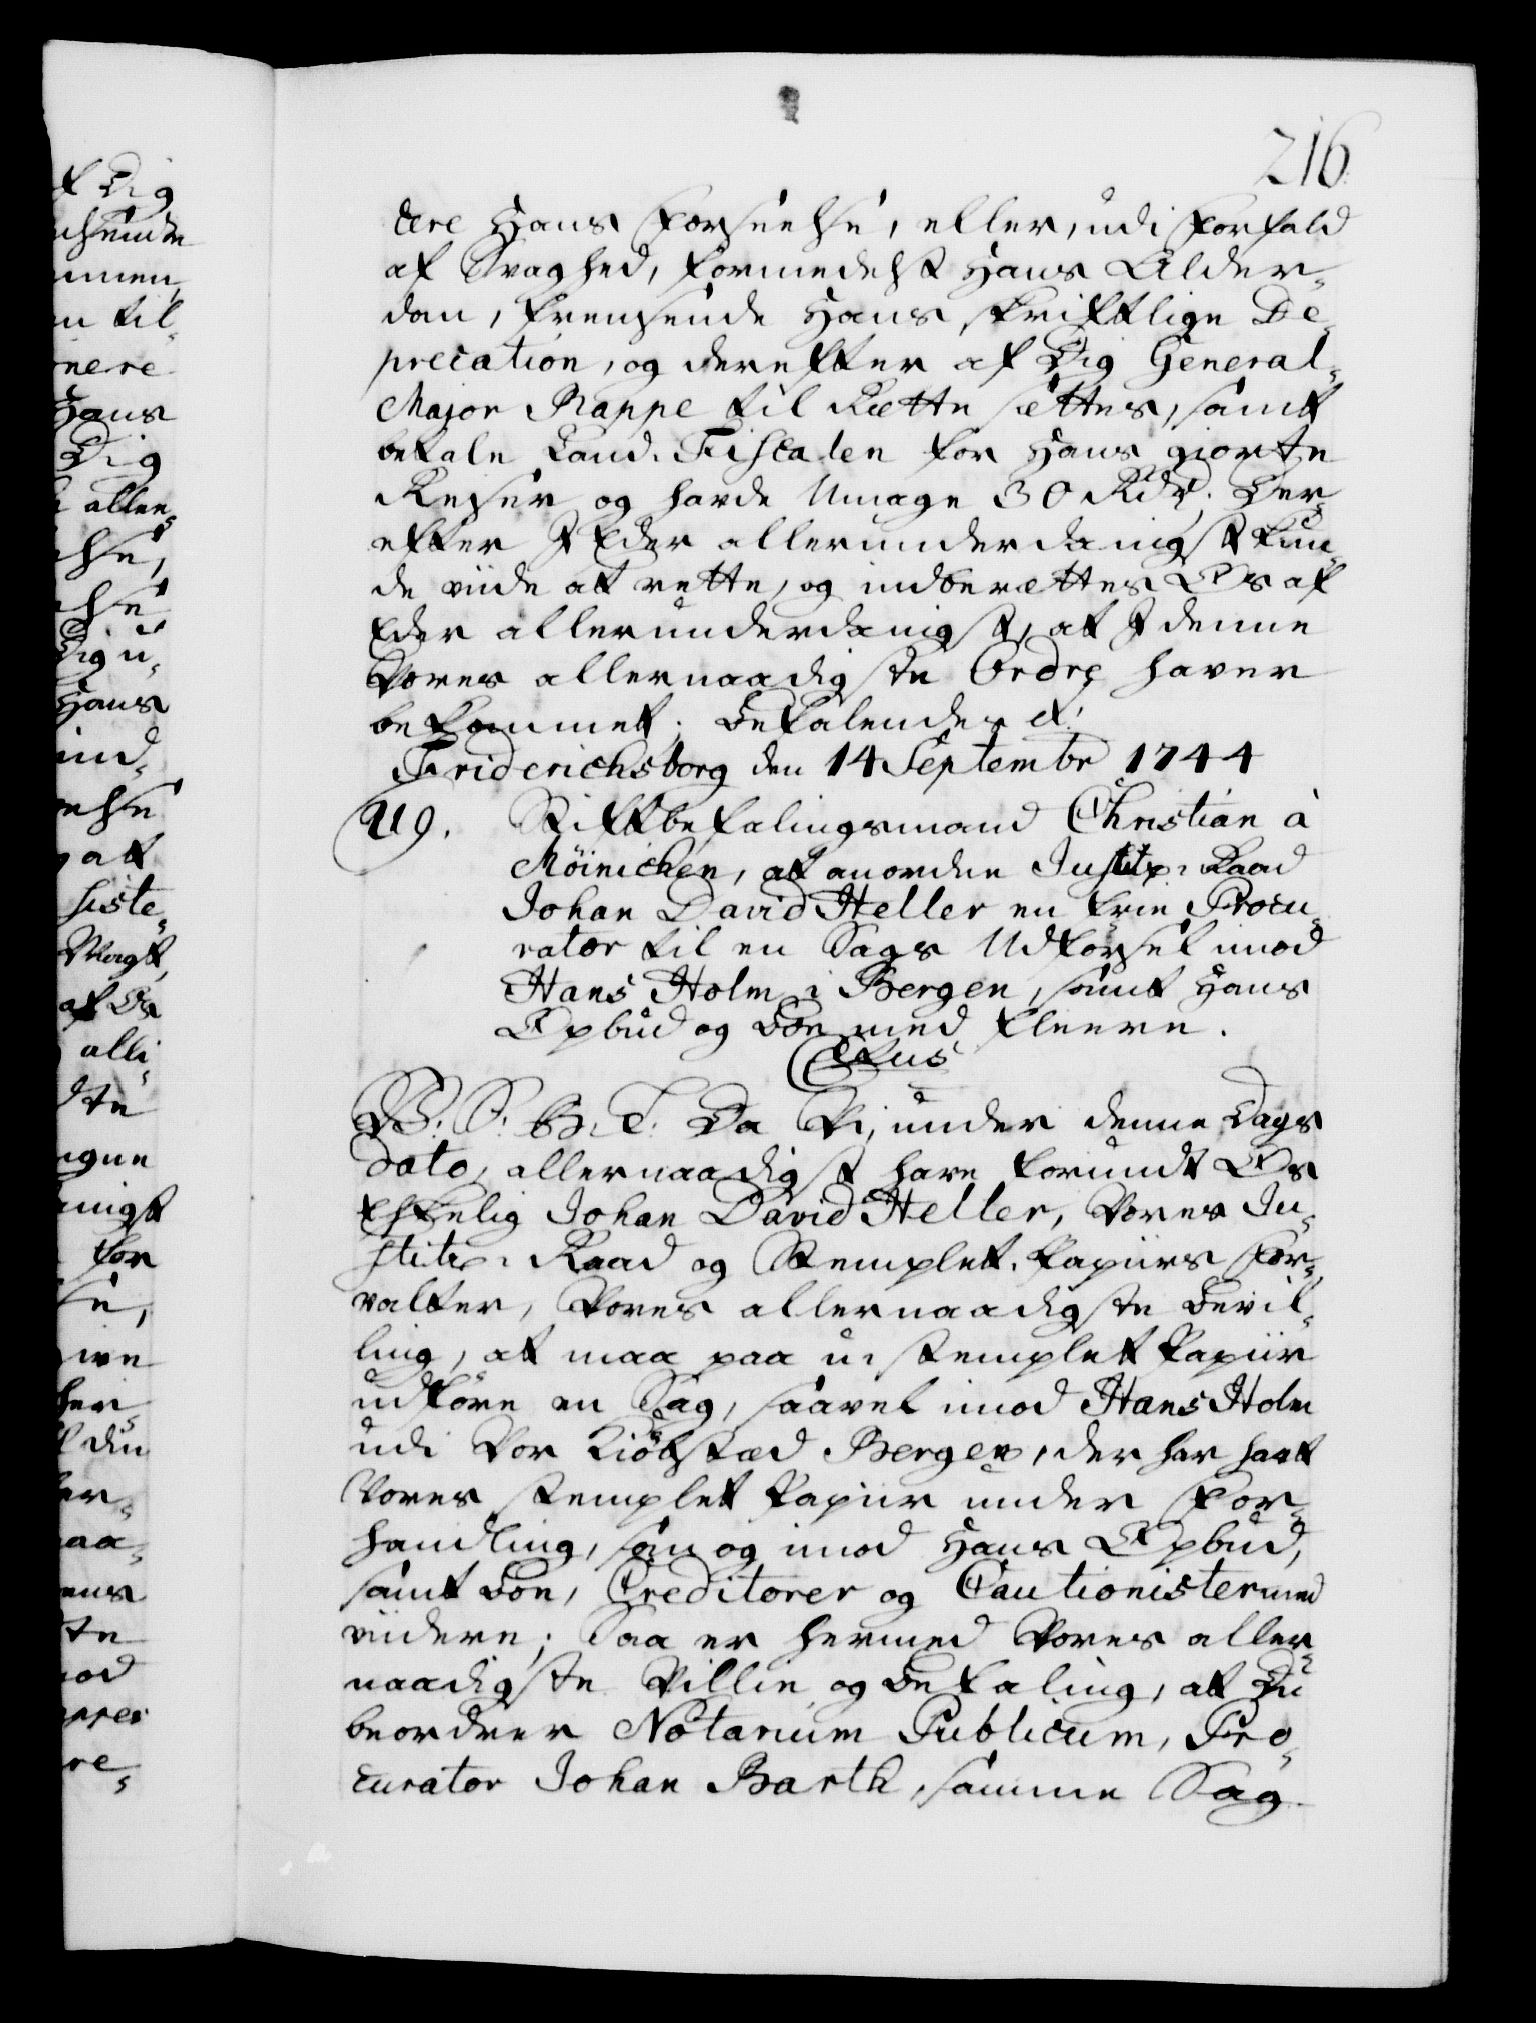 216.
dere Hans Forseelse, eller, udi Forfald
af Svaghed, formedelst Hans Alder-
dom, fremsende Hans skriftlige De-
precation, og derefter af Dig General-
Major Rappe til Rette sættes, samt
betale Land-Fiscalen for Hans giorte
Reiser og havde Umage 30 Rdr. Der-
efter I Eder allerunderdanigst kun-
de viide at rette, og indberettes Os af
Eder allerunderdanigst, at I denne
Vores allernaadigste Ordre haver
bekommet. Befalendes &.
Friderichsborg den 14 Septembr 1744
Stiftbefalingsmand Christian à
Möinichen, at anordne Justitz-Raad
Johan David Heller en frie Procu-
rator til en Sags Udførsel imod
Hans Holm i Bergen, samt Hans
Opbud og Boe med fleere.
C6tus
V. S. G. T. Da Vi, under denne Dags
Dato, allernaadigst have forundt Os
Elskelig Johan David Heller, Vores Ju-
stitz-Raad og Stemplet-Papiirs For-
valter, Vores allernaadigste Bevil-
ling, at maa paa u-stemplet Papiir
udføre en Sag, saavel imod Hans Holm
udi Vor Kiöbstæd Bergen, der har havt
Vores stemplet Papiir under For-
handling, som og imod Hans Opbud,
samt Boe, Creditorer og Cautionister med
viidere; Saa er hermed Vores aller-
naadigste Villie og Befaling, at Du
beordrer Notarium Publicum, Pro-
curator Johan Barth, samme Sag